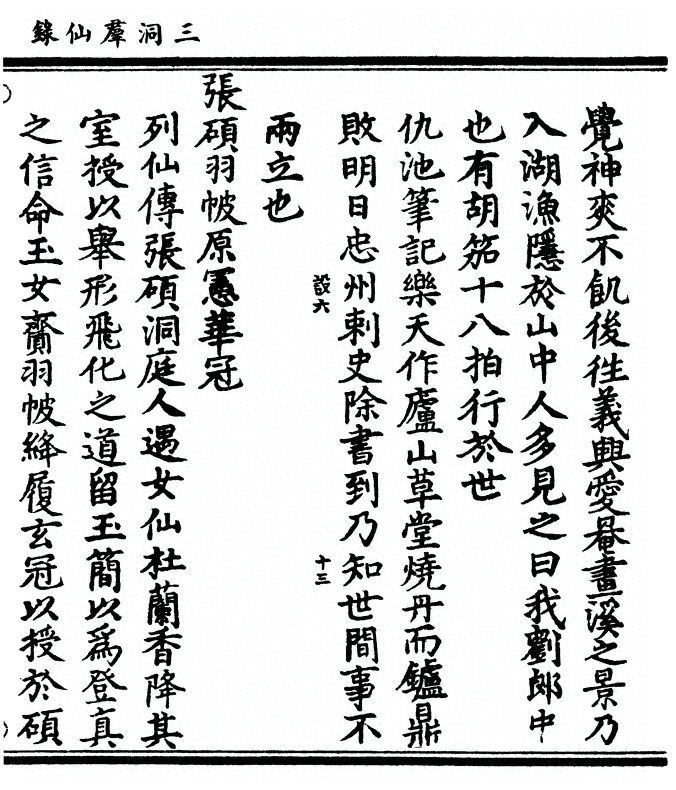 三洞羣仙錄
覺神爽不飢後徃義興愛罨畫溪之景乃
入湖漁隱於山中人多見之曰我劉郞中
也有胡笳十八拍行於世
仇池筆記樂天作廬山草堂燒丹而鑪鼎
敗明日忠州刺史除書到乃知世間事不
設六
十三
兩立也
張碩羽帔原憲華冠
列仙傳張碩洞庭人遇女仙杜蘭香降其
室授以舉形飛化之道留玉簡以爲登真
之信命玉女齎羽帔絳履玄冠以授於碩